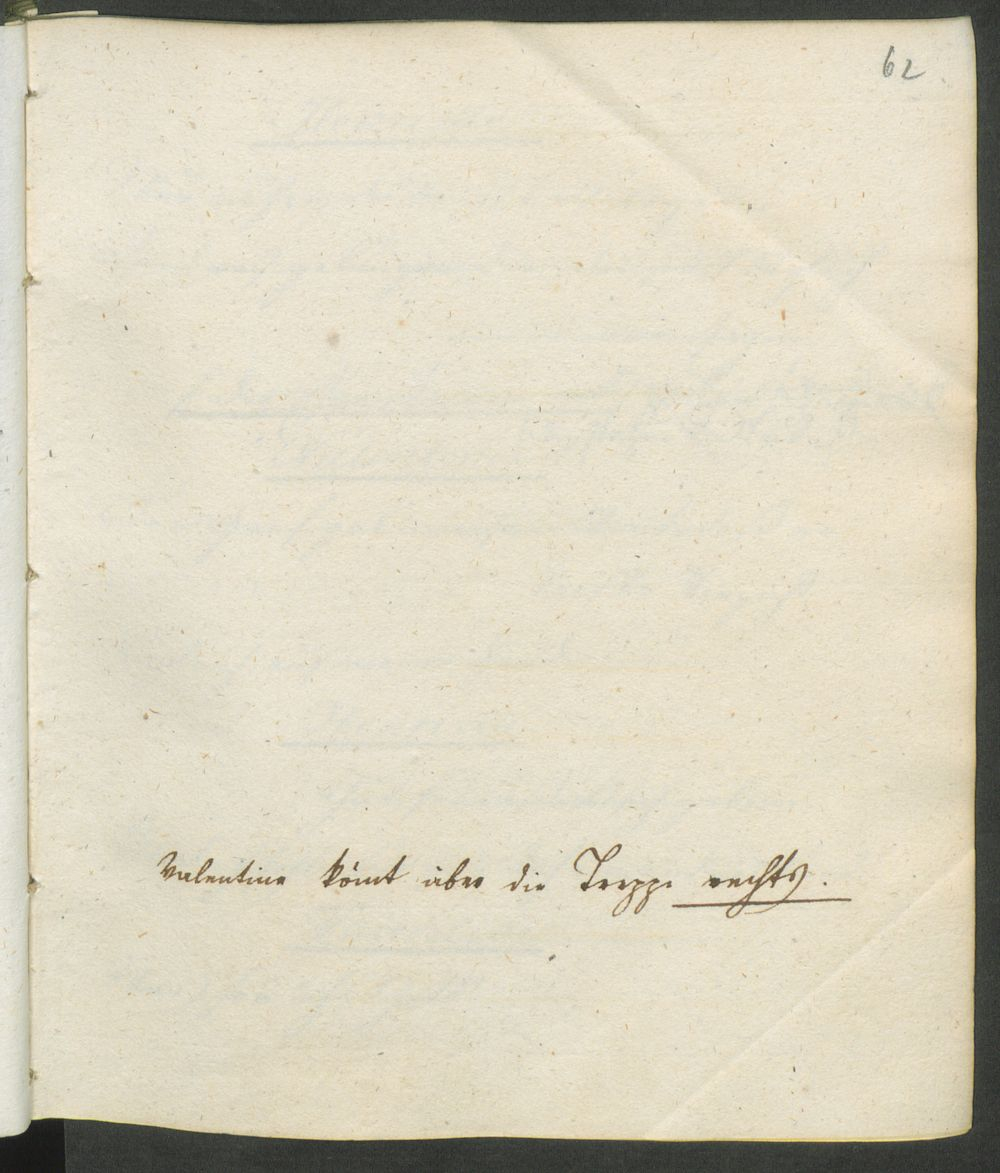 62
Valentine kömt über die Treppe rechts.